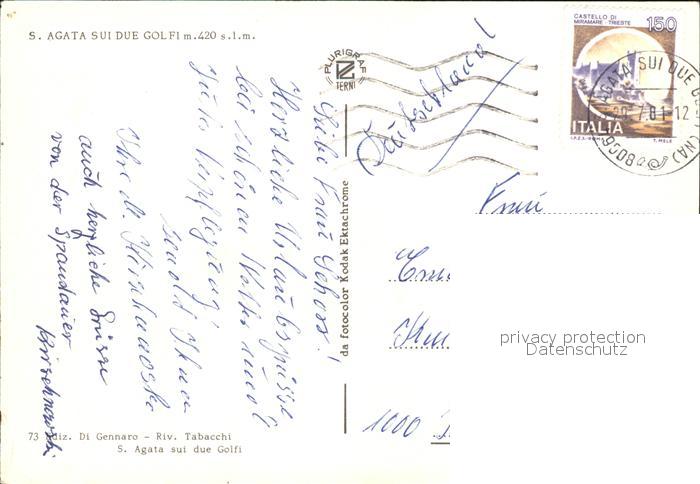 S. AGATA SUI DUE GOLFI m. 420 s.l.m.
PLURIGRAF
TERNI
CASTELLO DI
MIRAMARE - TRIESTE
150
ITALIA
I.P.Z.S. - ROMA
T. MELE
AGATA SUI DUE G
(NA)
80060
7.81-12
Deutschland
Liebe Frau Schors!
Herzliche Urlaubsgrüsse
bei schönem Wetter und
guter Verpflegung
sendet Ihnen
Ihre
auch herzliche Grüsse
von der Spandauer
da fotocolor Kodak Ektachrome
Frau
1000
privacy protection
Datenschutz
73 Ediz. Di Gennaro - Riv. Tabacchi
S. Agata sui due Golfi